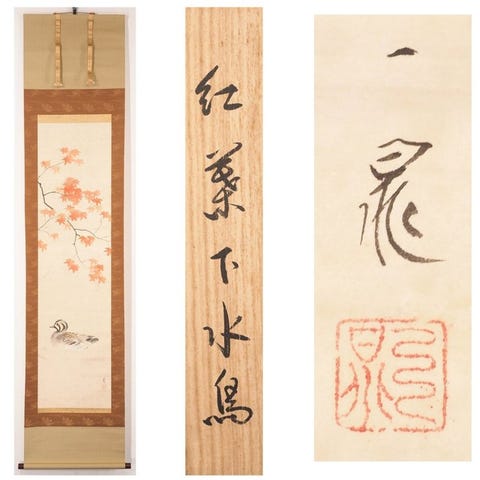 紅葉下水鳥
一